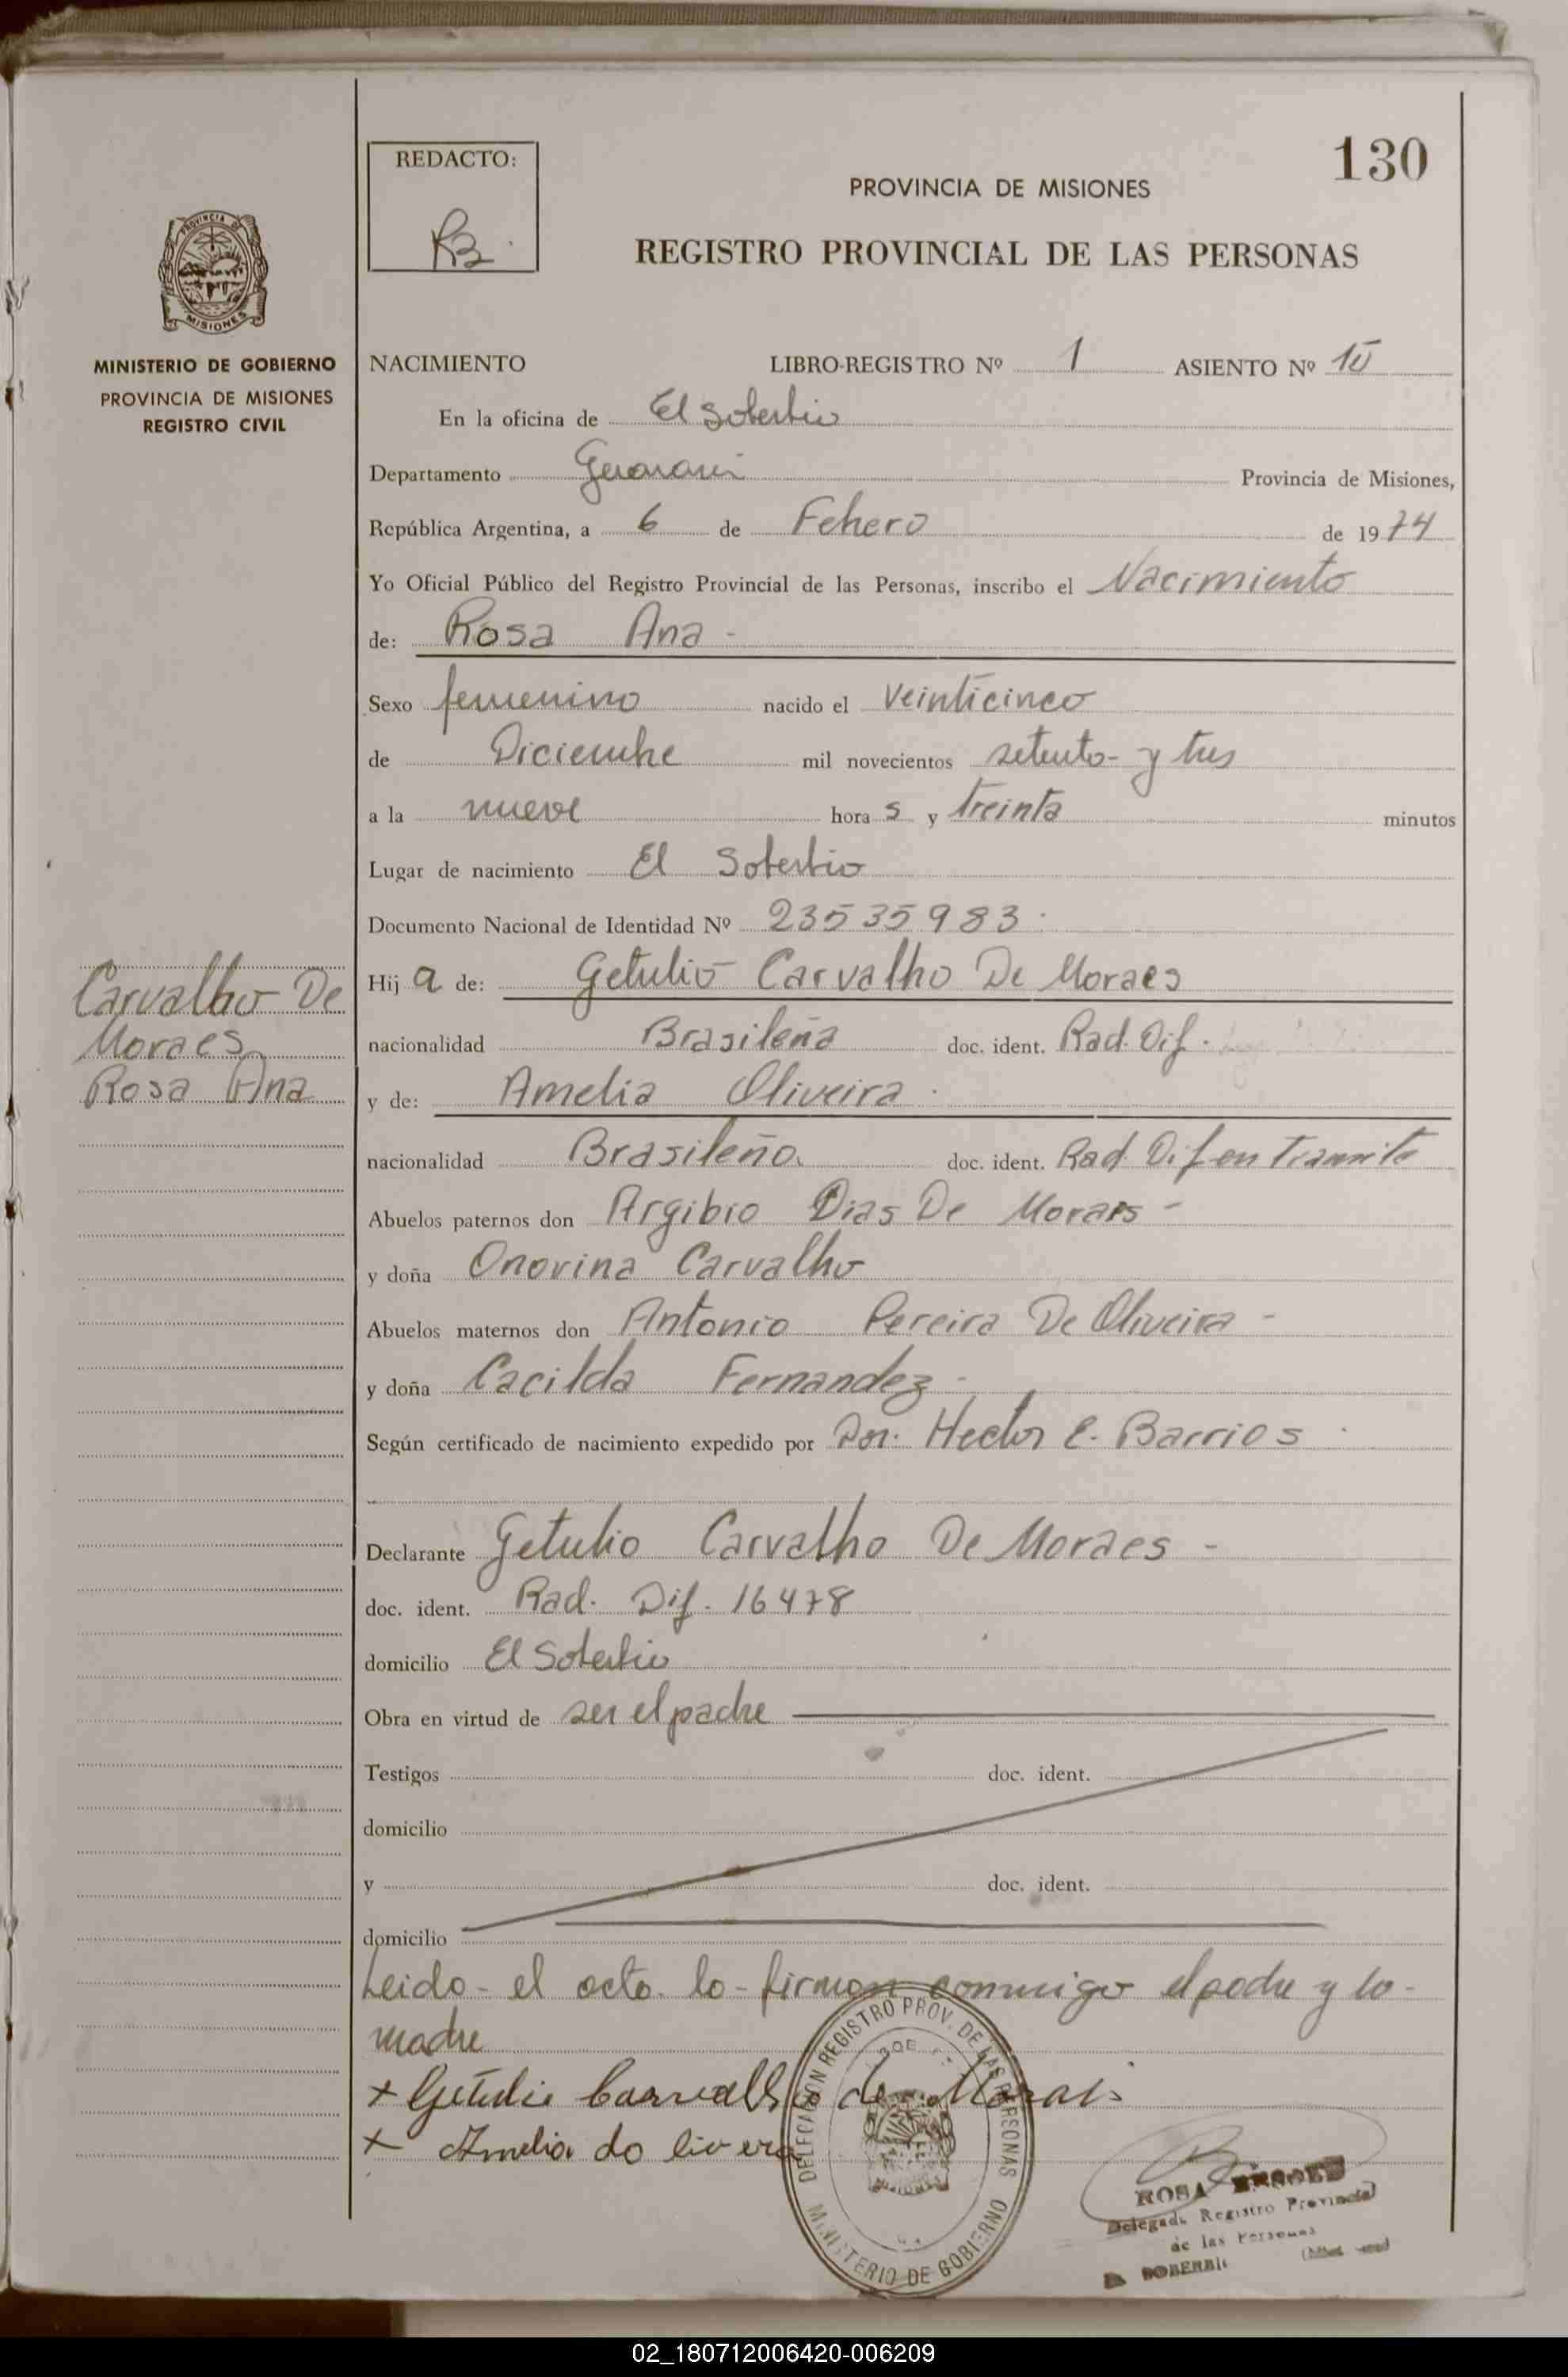 130
REDACTO:
RB.
PROVINCIA DE MISIONES
REGISTRO PROVINCIAL DE LAS PERSONAS
PROVINCIA DE
MISIONES
MINISTERIO DE GOBIERNO
PROVINCIA DE MISIONES
REGISTRO CIVIL
NACIMIENTO LIBRO-REGISTRO Nº 1 ASIENTO Nº
En la oficina de El Soberbio
Departamento Guarani Provincia de Misiones,
República Argentina, a 6 de Febrero de 1974
Yo Oficial Público del Registro Provincial de las Personas, inscribo el Nacimiento
de: Rosa Ana -
Sexo femenino nacido el Veinticinco
de Diciembre mil novecientos setenta y tres
a la nueve hora s y treinta minutos
Lugar de nacimiento El Soberbio
Documento Nacional de Identidad Nº 23535983.
Hij a de: Getulio Carvalho De Moraes
nacionalidad Brasileña doc. ident. Rad. Dif.
y de: Amelia Oliveira.
nacionalidad Brasileña doc. ident. Rad. Dif en tramite
Abuelos paternos don Argibio Dias De Moraes -
y doña Onorina Carvalho
Abuelos maternos don Antonio Pereira De Oliveira -
y doña Cacilda Fernandez -
Según certificado de nacimiento expedido por Dor. Hector E. Barrios.
Declarante Getulio Carvalho De Moraes -
doc. ident. Rad. Dif. 16478
domicilio El Soberbio
Obra en virtud de ser el padre
Testigos doc. ident.
domicilio
y doc. ident.
domicilio
Carvalho De
Moraes
Rosa Ana
Leido el acta lo firman conmigo el padre y la
madre
+ Getulio Carvalho de Morais
+ Amelia do livera
DELEGACION REGISTRO PROV. DE LAS PERSONAS
MINISTERIO DE GOBIERNO
ROSA
Delegada Registro Provincial
de las Personas
SOBERBIO
02_180712006420-006209